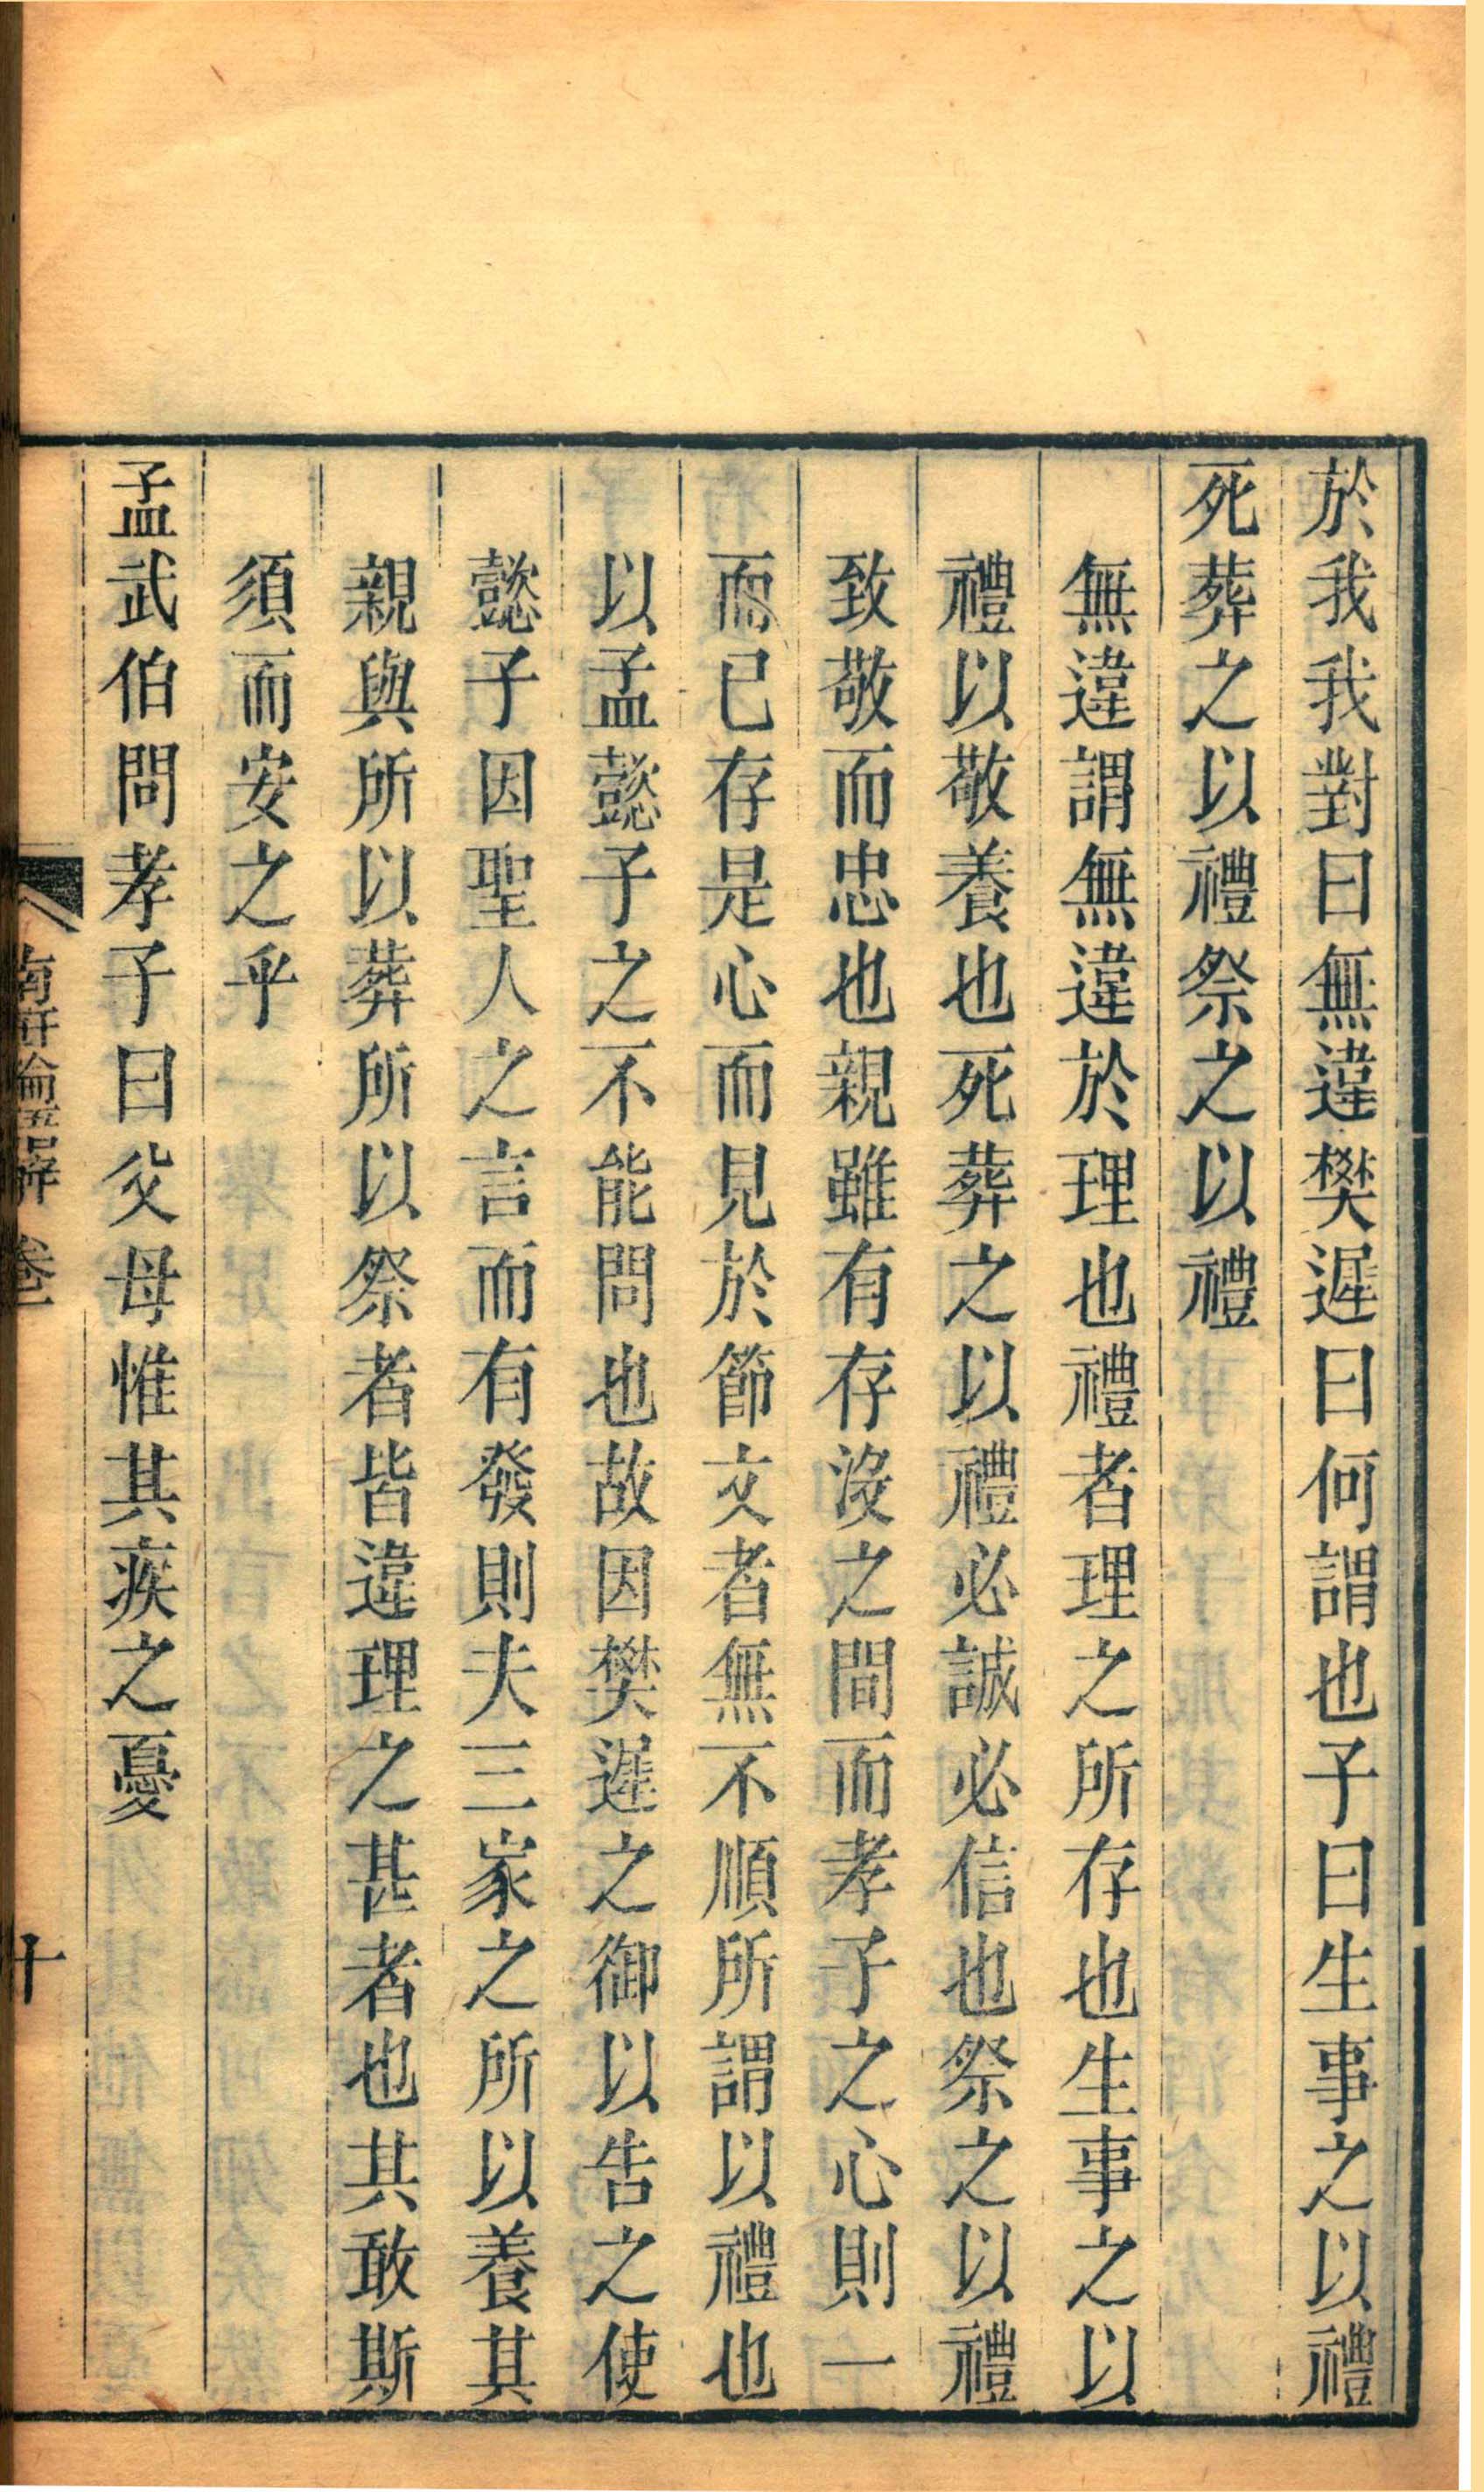 於我我對曰無違樊遲曰何謂也子曰生事之以禮
死葬之以禮祭之以禮
無違謂無違於理也禮者理之所存也生事之以
禮以敬養也死葬之以禮必誠必信也祭之以禮
致敬而忠也親雖有存沒之間而孝子之心則一
而已存是心而見於節文者無不順所謂以禮也
以孟懿子之不能問也故因樊遲之御以告之使
懿子因聖人之言而有發則夫三家之所以養其
親與所以葬所以祭者皆違理之甚者也其敢斯
須而安之乎
孟武伯問孝子曰父母惟其疾之憂
南軒論語解 卷一
十